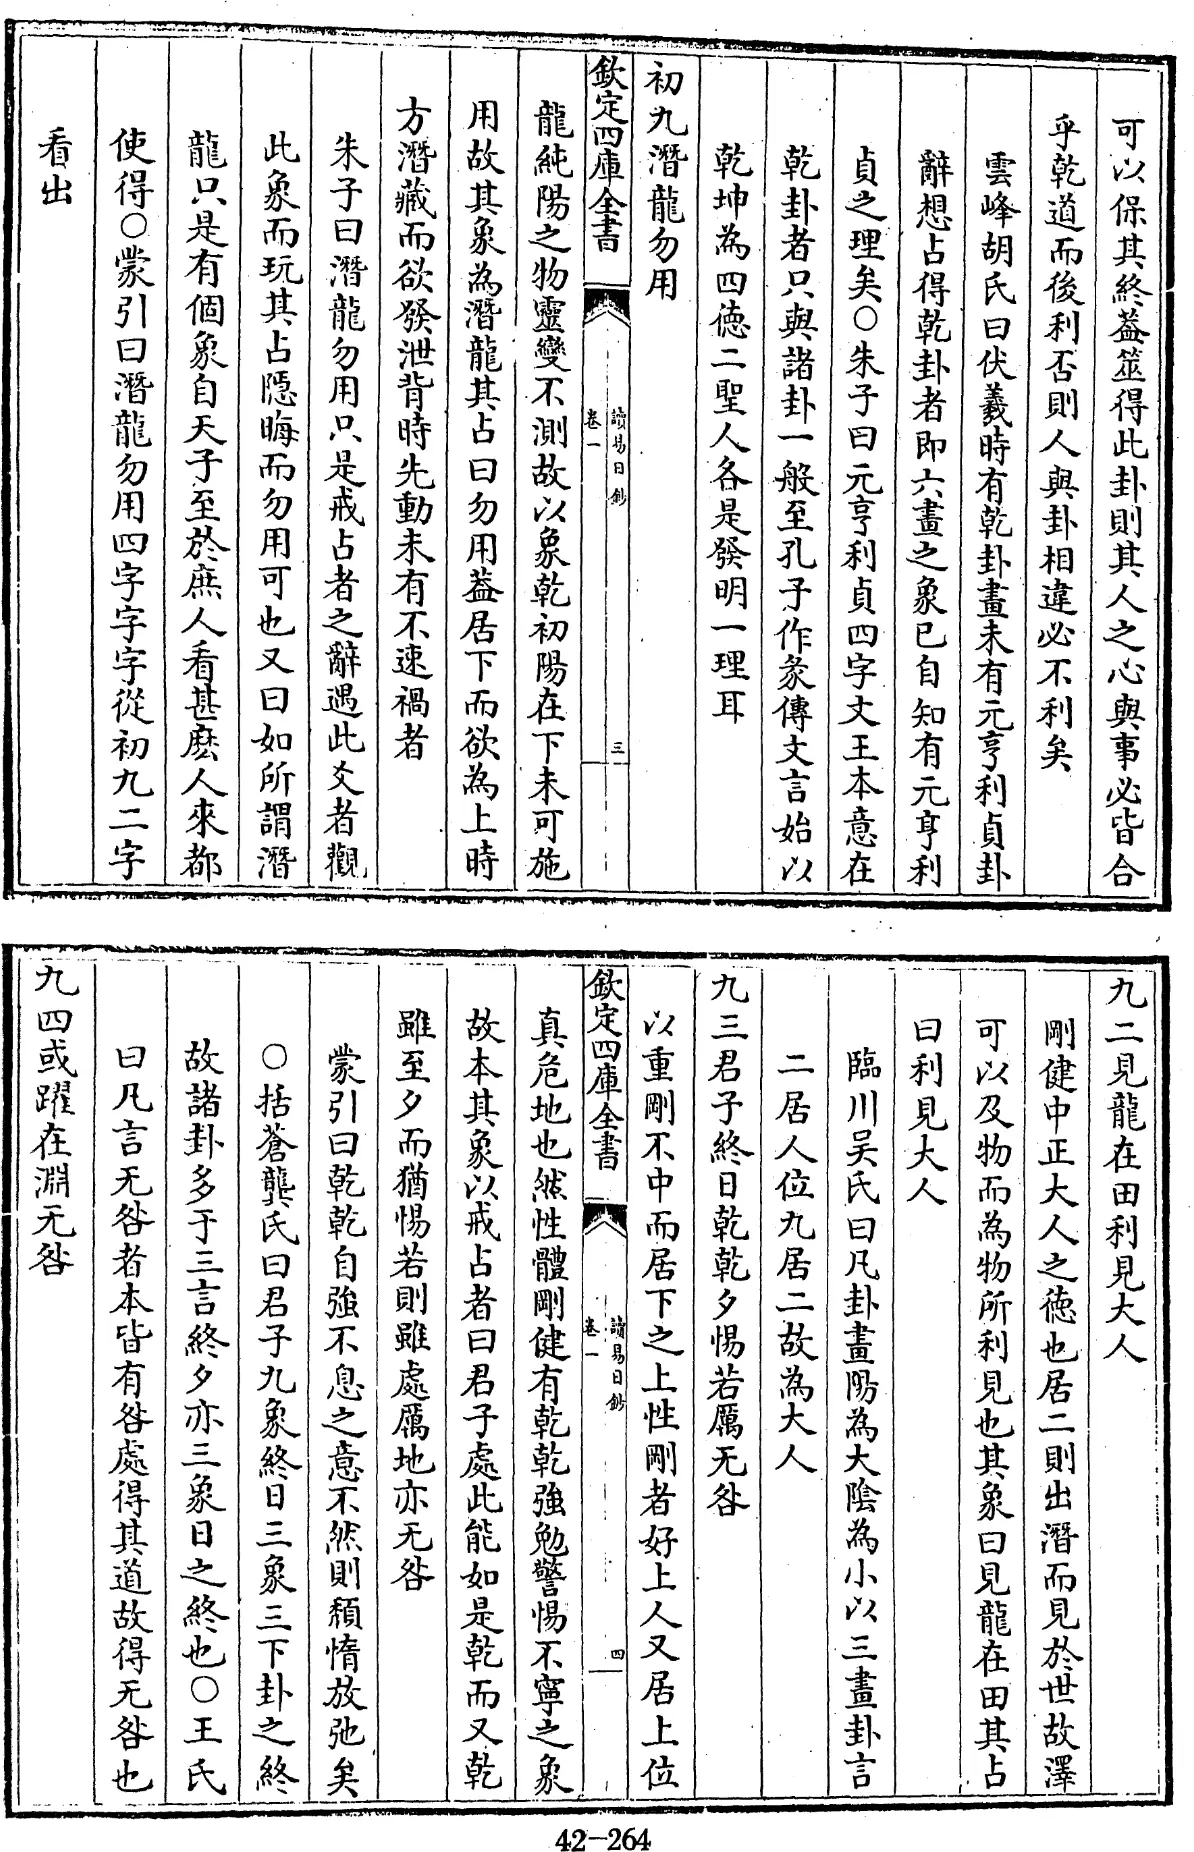 可以保其終葢筮得此卦則其人之心與事必皆合
乎乾道而後利否則人與卦相違必不利矣
雲峰胡氏曰伏羲時有乾卦畫未有元亨利貞卦
辭想占得乾卦者即六畫之象已自知有元亨利
貞之理矣○朱子曰元亨利貞四字文王本意在
乾卦者只與諸卦一般至孔子作彖傳文言始以
乾坤為四德二聖人各是發明一理耳
初九潛龍勿用
欽定四庫全書
讀易日鈔
卷一
三
龍純陽之物靈變不測故以象乾初陽在下未可施
用故其象為潛龍其占曰勿用葢居下而欲為上時
方潛藏而欲發泄背時先動未有不速禍者
朱子曰潛龍勿用只是戒占者之辭遇此爻者觀
此象而玩其占隱晦而勿用可也又曰如所謂潛
龍只是有個象自天子至於庶人看甚麽人來都
使得○蒙引曰潛龍勿用四字字字從初九二字
看出
九二見龍在田利見大人
剛健中正大人之德也居二則出潛而見於世故澤
可以及物而為物所利見也其象曰見龍在田其占
曰利見大人
臨川吴氏曰凡卦畫陽為大陰為小以三畫卦言
二居人位九居二故為大人
九三君子終日乾乾夕惕若厲无咎
以重剛不中而居下之上性剛者好上人又居上位
欽定四庫全書
讀易日鈔
卷一
四
真危地也然性體剛健有乾乾強勉警惕不寧之象
故本其象以戒占者曰君子處此能如是乾而又乾
雖至夕而猶惕若則雖處厲地亦无咎
蒙引曰乾乾自強不息之意不然則頽惰放弛矣
○括蒼龔氏曰君子九象終日三象三下卦之終
故諸卦多于三言終夕亦三象日之終也○王氏
曰凡言无咎者本皆有咎處得其道故得无咎也
九四或躍在淵无咎
42-264